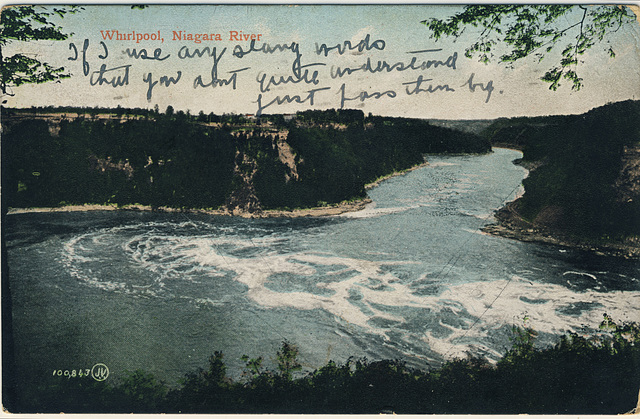 Whirlpool, Niagara River
If I use any slang words
that you dont quite understand —
just pass them by.
100,843 JV